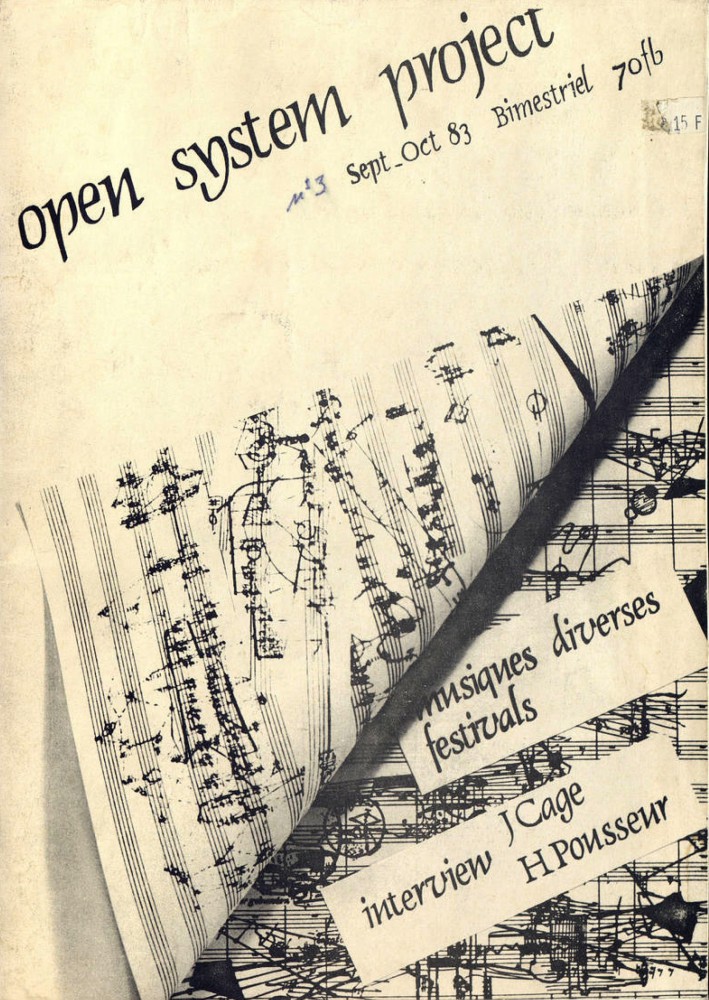 open system project
n°3 Sept_Oct 83 Bimestriel 70fb
15 F
musiques diverses
festivals
interview J Cage
H Pousseur